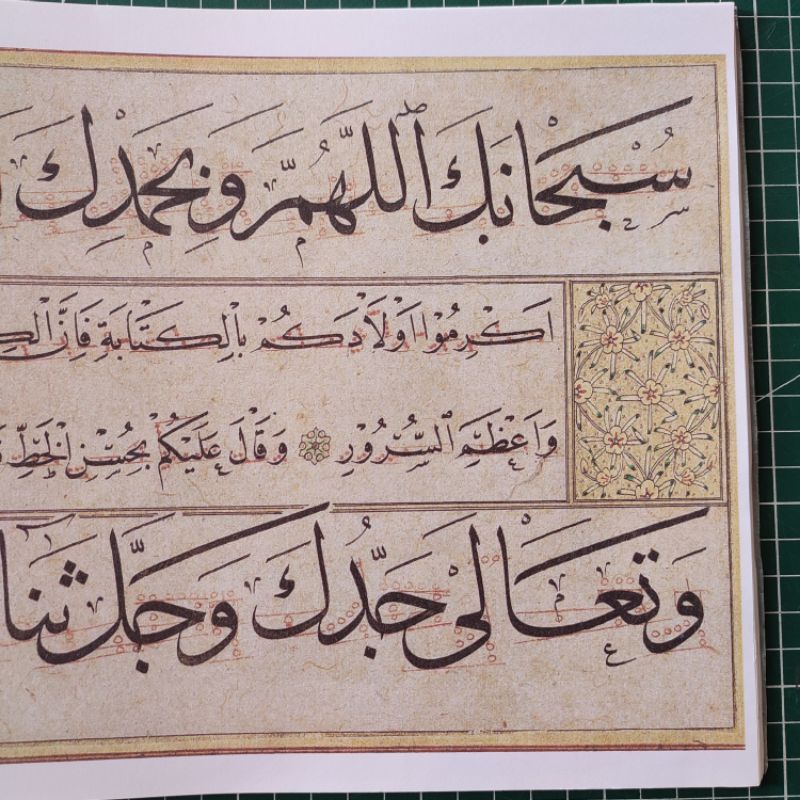 سُبْحَانَكَ ٱللَّهُمَّ وَبِحَمْدِكَ
اَكْرِمُوْا اَوْلَادَكُمْ بِالْكِتَابَةِ فَاِنَّ
وَاَعْظَمِ السُّرُوْرِ وَقَالَ عَلَيْكُمْ بِحُسْنِ الْخَطِّ
وَتَعَالٰى جَدُّكَ وَجَلَّ